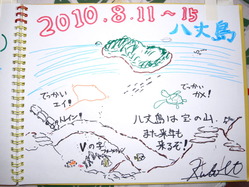 2010.8.11〜15
八丈島
でっかい
エイ!
でっかい
カメ!
八丈島は宝の山、
また来年も
来るぞ!
Vの字